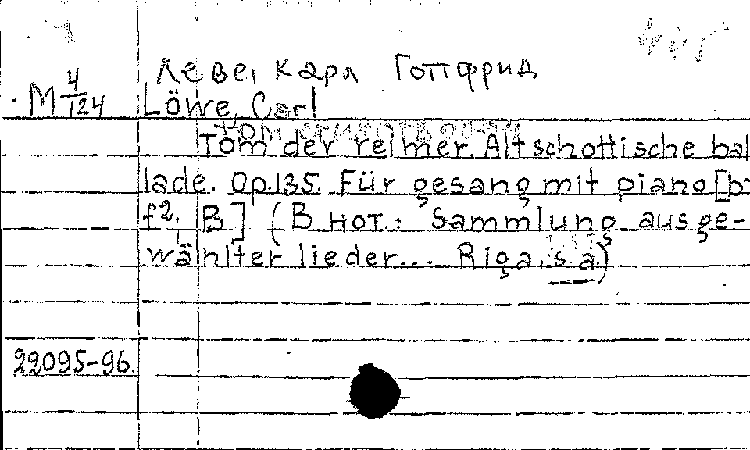 Леве, Карл Готфрид
М 4/124 Löwe, Carl
Tom der reimer. Altschottische bal
lade. Op.135. Für gesang mit piano [b-
f2, B] (В нот.: Sammlung ausge-
wählter lieder... Riga, s a)
22095-96.